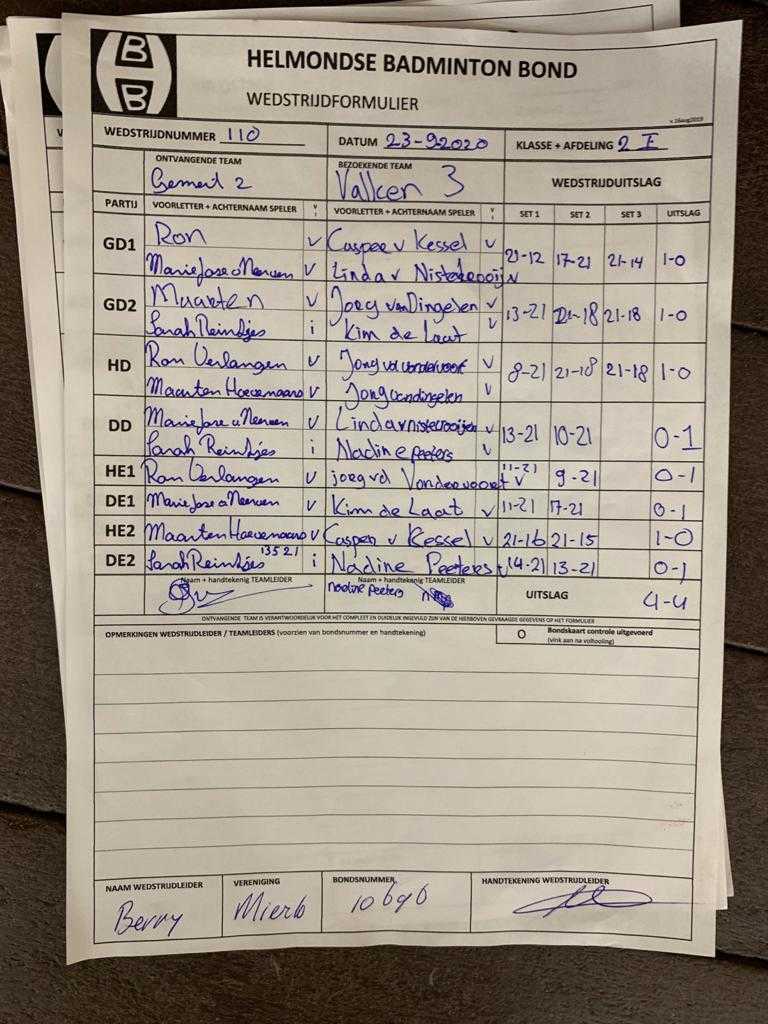 B
B
HELMONDSE BADMINTON BOND
WEDSTRIJDFORMULIER
v.16aug2019
WEDSTRIJDNUMMER 110 DATUM 23-92020 KLASSE + AFDELING 2 I
ONTVANGENDE TEAM BEZOEKENDE TEAM WEDSTRIJDUITSLAG
Gemert 2 Valken 3
PARTIJ VOORLETTER + ACHTERNAAM SPELER V I VOORLETTER + ACHTERNAAM SPELER V I SET 1 SET 2 SET 3 UITSLAG
GD1 Ron v Casper v Kessel v 21-12 17-21 21-14 1-0
MarieJose v Neerven v Linda v Nistelrooijn
GD2 Maarten v Joeg van Dingelen v 13-21 21-18 21-18 1-0
Sarah Reintjes i Kim de Laat v
HD Ron Verlangen v v 8-21 21-18 21-18 1-0
Maarten Hoevenaars v Jong vandingelen v
DD MarieJose v Neerven v Linda v nistelrooijen v 13-21 10-21 0-1
Sarah Reintjes i Nadine Peeters v
HE1 Ron Verlangen v joeg vd Vondervoort v 11-21 9-21 0-1
DE1 MarieJose v Neerven v Kim de Laat v 11-21 17-21 0-1
HE2 Maarten Hoevenaars v Casper v Kessel v 21-16 21-15 1-0
DE2 Sarah Reintjes 13521 i Nadine Peeters v 14-21 13-21 0-1
Naam + handtekenig TEAMLEIDER Naam + handtekenig TEAMLEIDER UITSLAG 4-4
nadine peeters
ONTVANGENDE TEAM IS VERANTWOORDELIJK VOOR HET COMPLEET EN DUIDELIJK INGEVULD ZIJN VAN DE HIERBOVEN GEVRAAGDE GEGEVENS OP HET FORMULIER
OPMERKINGEN WEDSTRIJDLEIDER / TEAMLEIDERS (voorzien van bondsnummer en handtekening) O Bondskaart controle uitgevoerd
(vink aan na voltooiing)
NAAM WEDSTRIJDLEIDER VERENIGING BONDSNUMMER HANDTEKENING WEDSTRIJDLEIDER
Berry Mierlo 10696